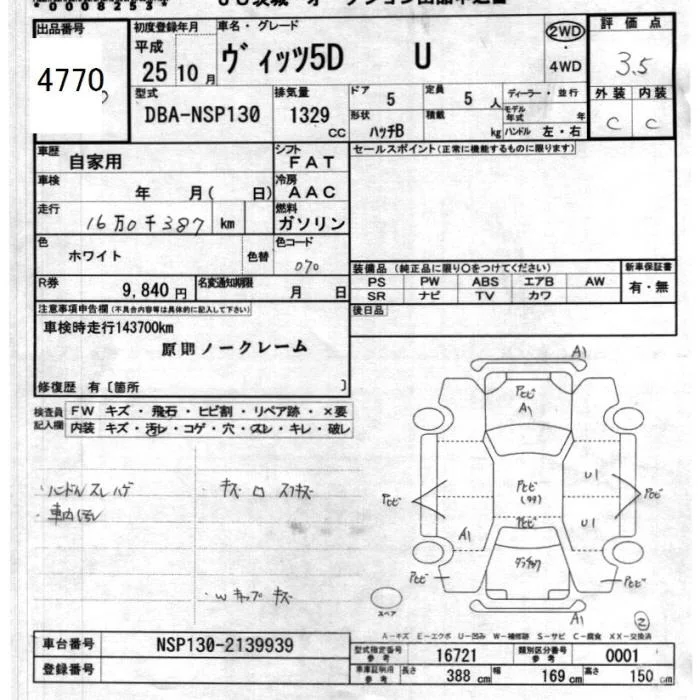 出品番号
4770
初度登録年月
平成
25 10 月
車名・グレード
ヴィッツ5D U
2WD
・
4WD
評価点
3.5
外装 内装
C C
型式
DBA-NSP130
排気量
1329
CC
ドア 5
定員 5 人
形状 ハッチB
積載 kg
ディーラー・並行
モデル年式 年
ハンドル 左・右
車歴
自家用
シフト
FAT
車検
年 月( 日)
冷房
AAC
走行
16万0千387 km
燃料
ガソリン
色
ホワイト
色替
色コード
070
R券
9,840 円
名変通知期限
月 日
セールスポイント(正常に機能するものに限ります)
装備品 (純正品に限り○をつけてください)
新車保証書
PS PW ABS エアB AW
SR ナビ TV カワ
有・無
後日品
注意事項申告欄(不具合内容等は具体的に記入して下さい)
車検時走行143700km
原則ノークレーム
修復歴 有〔箇所 〕
検査員
記入欄
FW キズ・飛石・ヒビ割・リペア跡・×要
内装 キズ・汚レ・コゲ・穴・スレ・キレ・破レ
・ハンドルスレハゲ
・車内汚レ
・キズ ロ スリキズ
・Wキャップ キズ
A1
アヒビ
A1
アヒビ
アヒビ
(99)
U1
アヒビ
アヒビ
U1
A1
アヒビ
アヒビ
アヒビ
A1
スペア
2
A-キズ E-エクボ U-凹み W-補修跡 S-サビ C-腐食 XX-交換済
車台番号
NSP130-2139939
登録番号
型式指定番号
参考
16721
類別区分番号
参考
0001
車庫証明用
参考
長さ 388 cm
幅 169 cm
高さ 150 cm